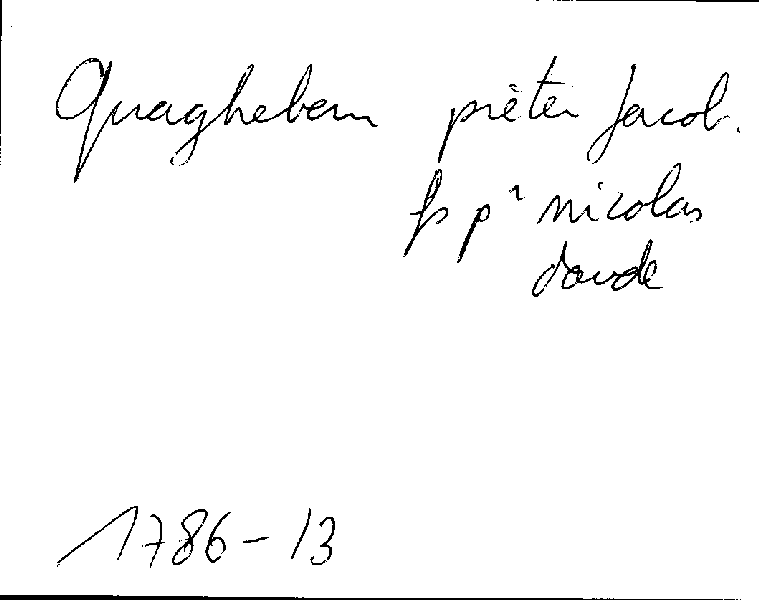 Quaghebeur prèter Jacob.
fs pr nicolas
d'oude
1786-13